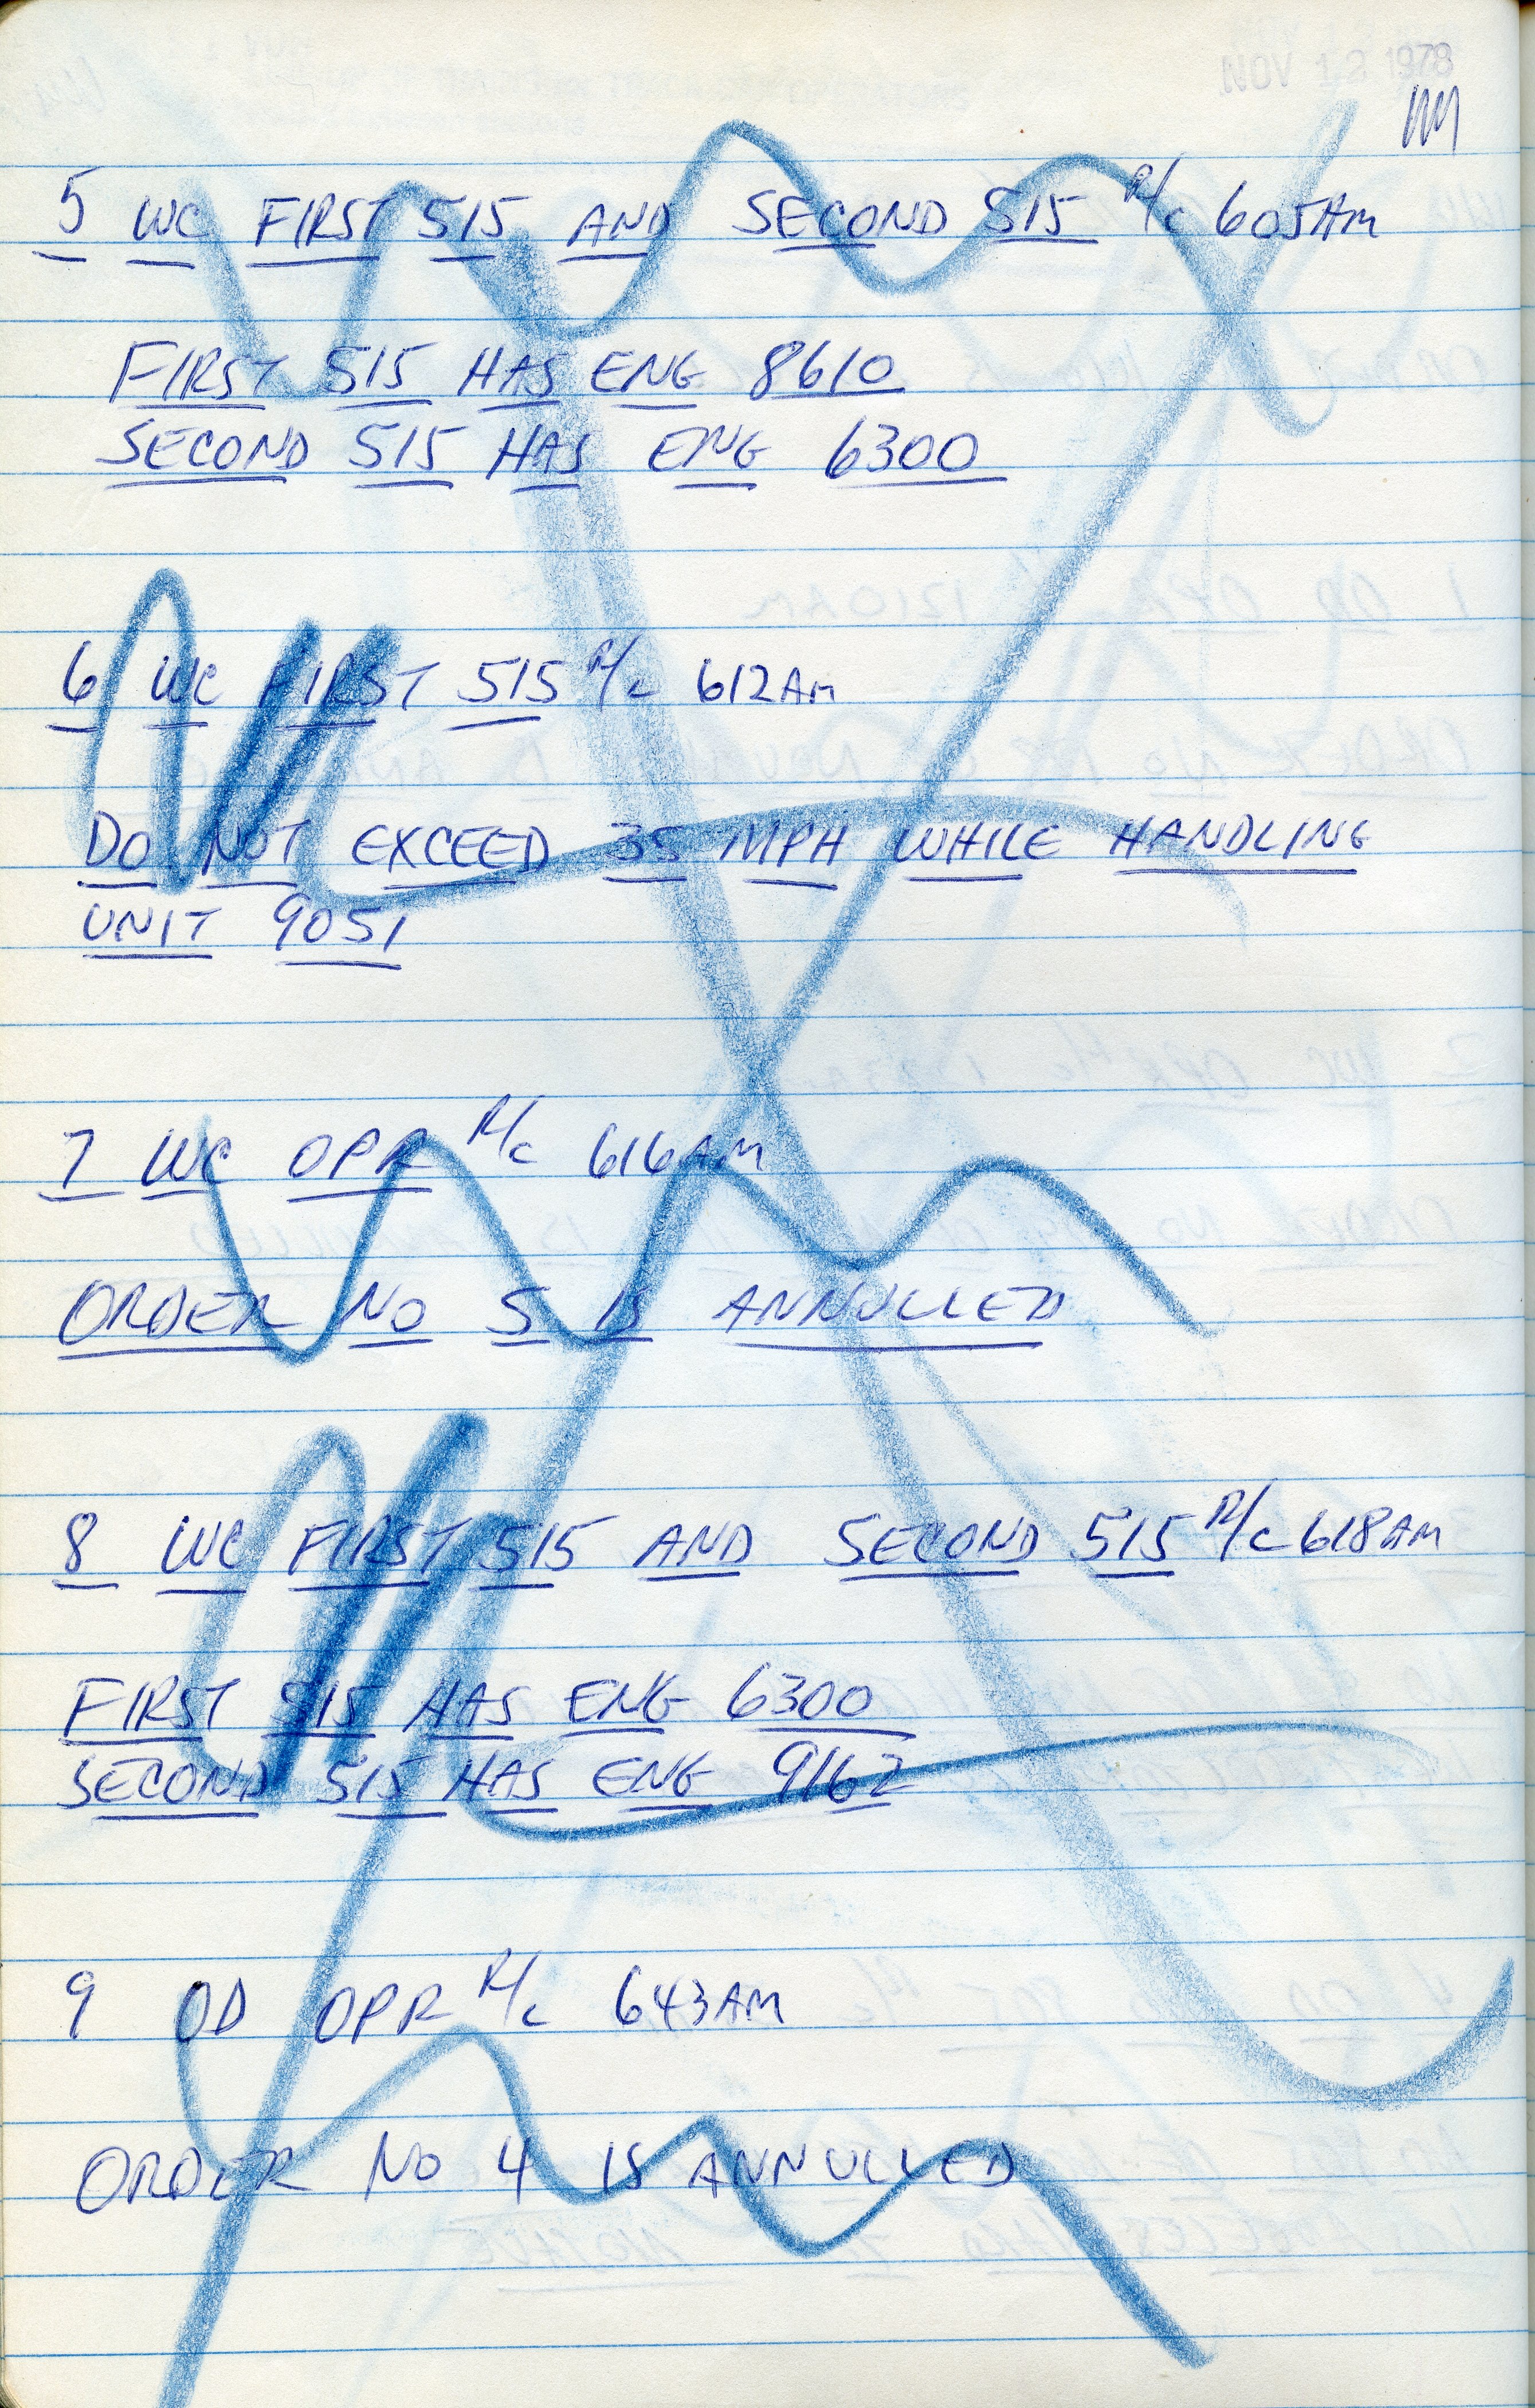 NOV 12 1978
5 WC FIRST 515 AND SECOND 515 R/C 605AM
FIRST 515 HAS ENG 8610
SECOND 515 HAS ENG 6300
6 WC FIRST 515 R/C 612AM
DO NOT EXCEED 35 MPH WHILE HANDLING
UNIT 9051
7 WC OPR R/C 616AM
ORDER NO 5 IS ANNULLED
8 WC FIRST 515 AND SECOND 515 R/C 618AM
FIRST 515 HAS ENG 6300
SECOND 515 HAS ENG 9162
9 OD OPR R/C 643AM
ORDER NO 4 IS ANNULLED